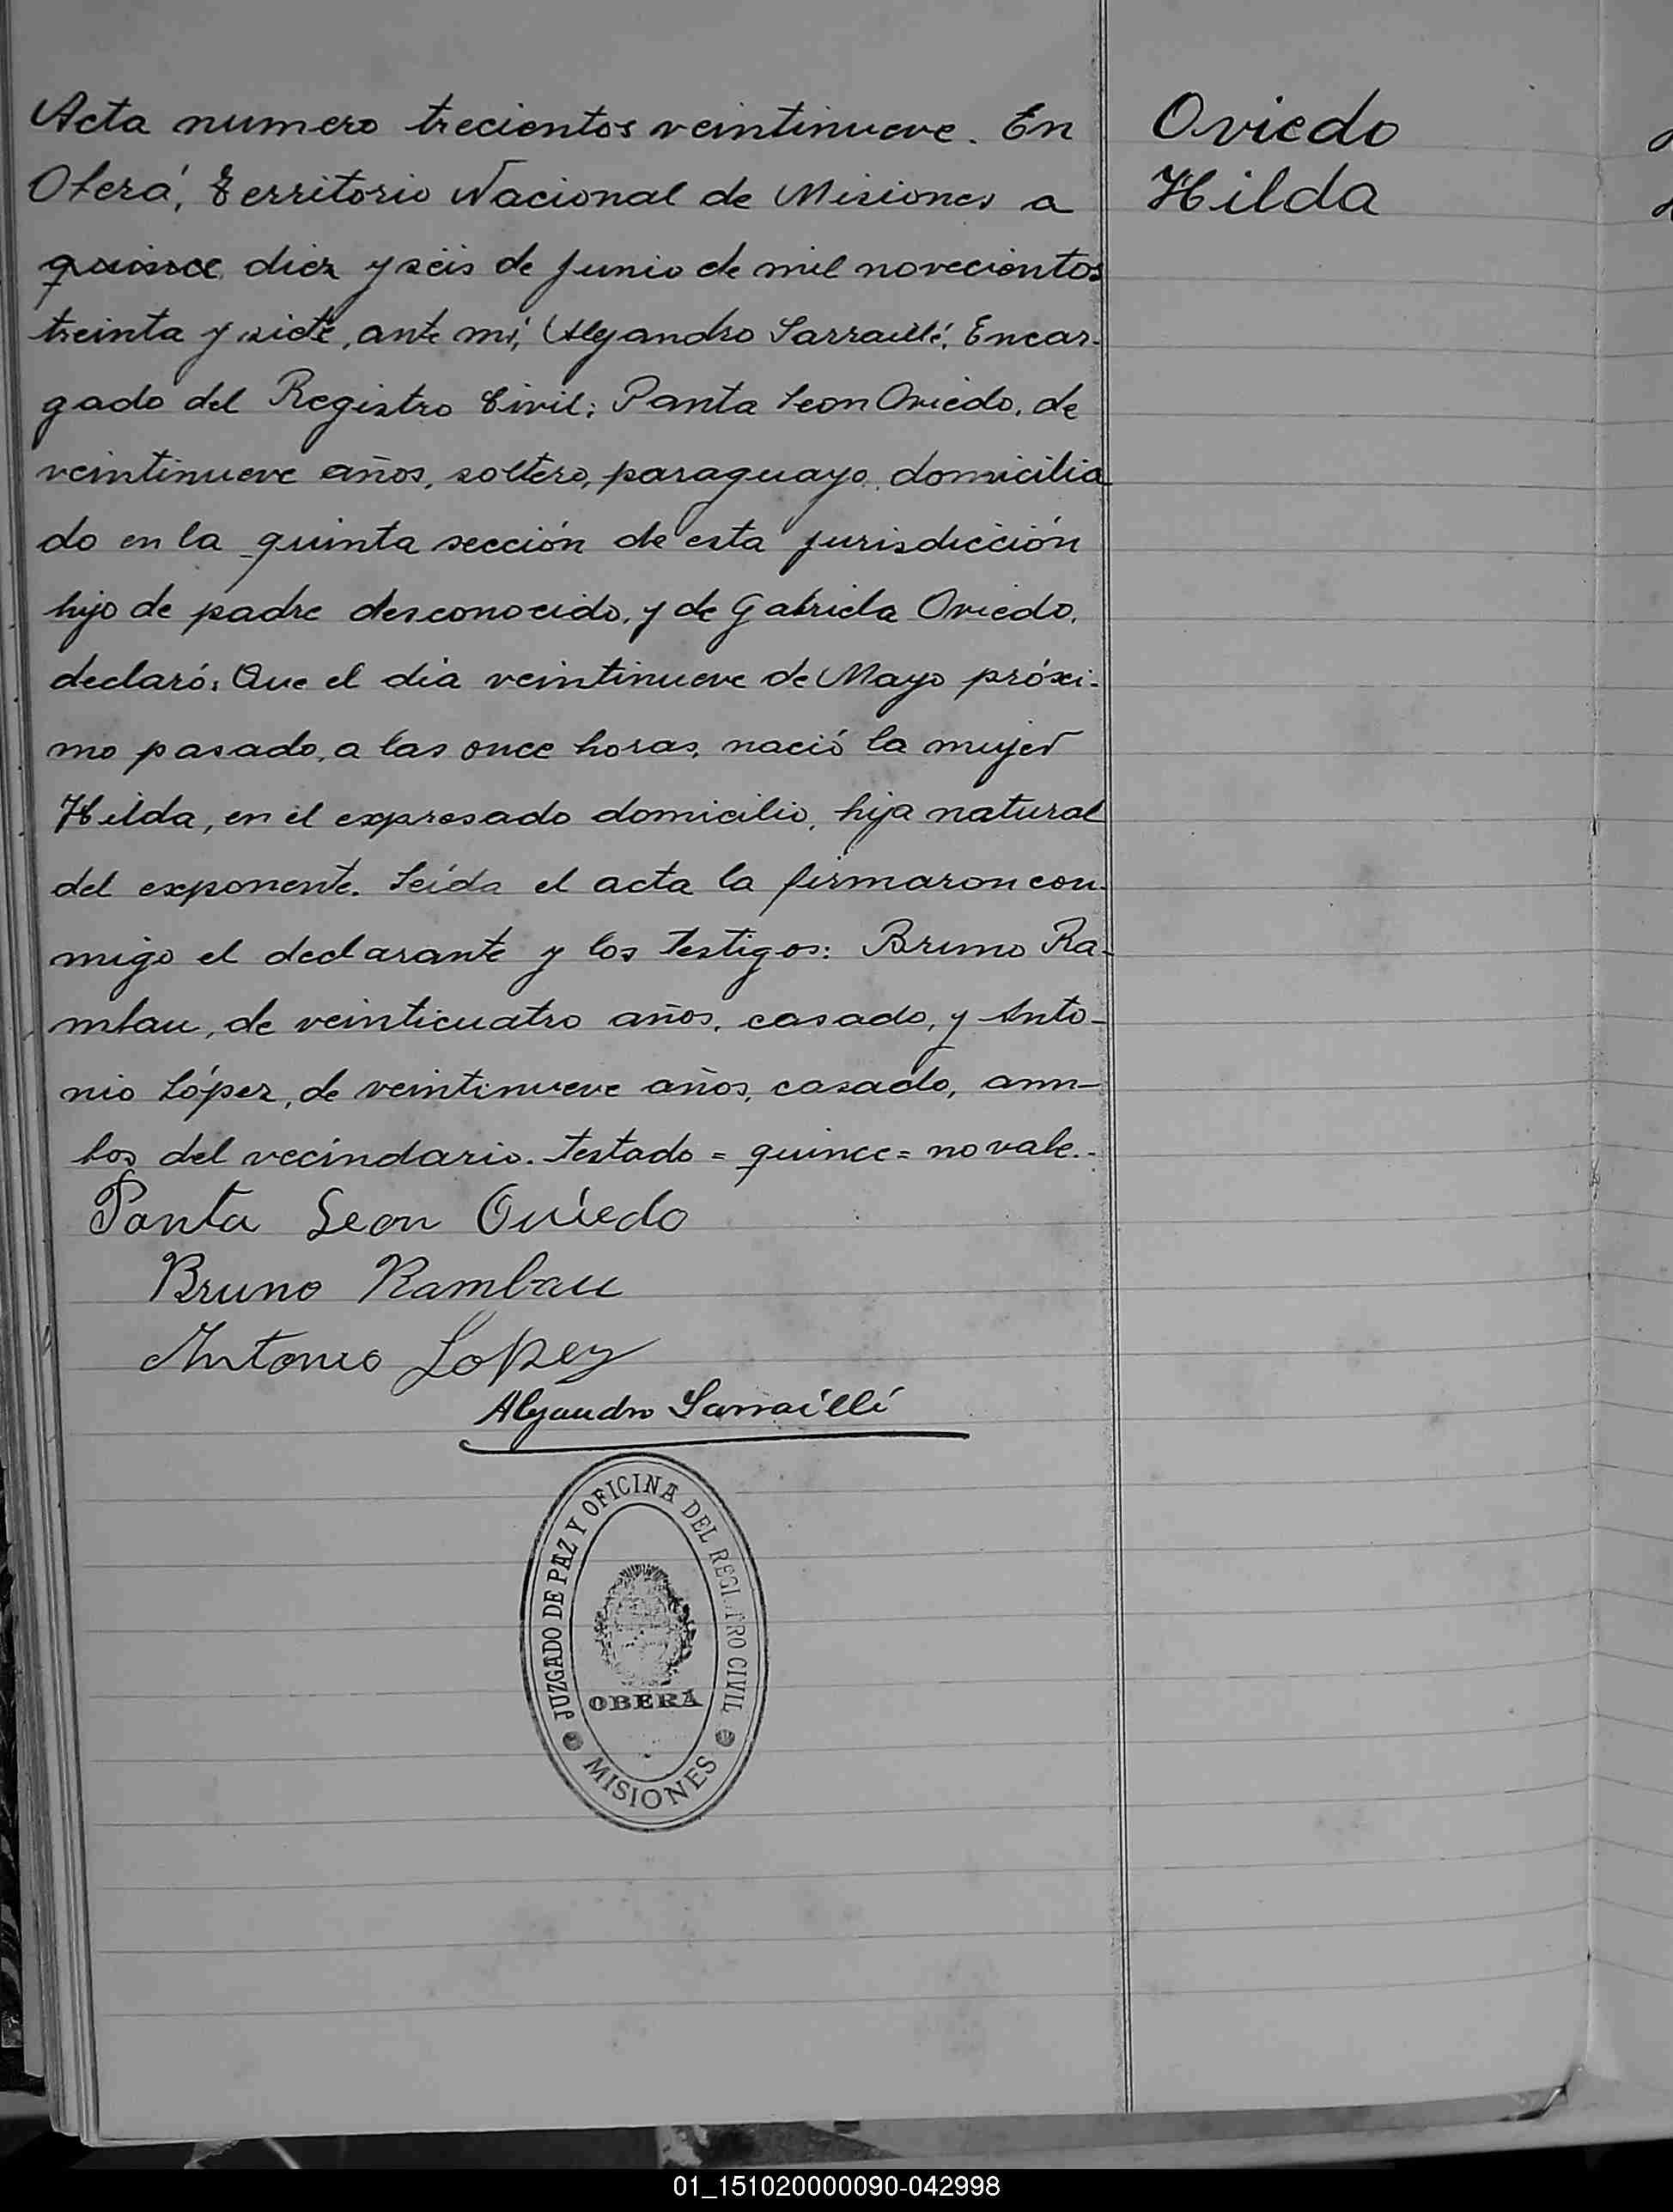 Acta numero trecientos veintinueve. En
Oberá, Territorio Nacional de Misiones a
quince diez y seis de Junio de mil novecientos
treinta y siete, ante mi, Alejandro Sarraillé, Encar-
gado del Registro Civil: Panta Leon Oviedo, de
veintinueve años, soltero, paraguayo, domicilia
do en la quinta sección de esta jurisdicción
hijo de padre desconocido, y de Gabriela Oviedo,
declaró: Que el dia veintinueve de Mayo próxi-
mo pasado, a las once horas, nació la mujer
Hilda, en el expresado domicilio, hija natural
del exponente. Leída el acta la firmaron con-
migo el declarante y los testigos: Bruno Ra-
mbau, de veinticuatro años, casado, y Anto-
nio López, de veintinueve años, casado, am-
bos del vecindario. Testado = quince = no vale.-
Panta Leon Oviedo
Bruno Rambau
Antonio Lopez
Alejandro Sarraillé
JUZGADO DE PAZ Y OFICINA DEL REGISTRO CIVIL
OBERA
MISIONES
Oviedo
Hilda
01_151020000090-042998